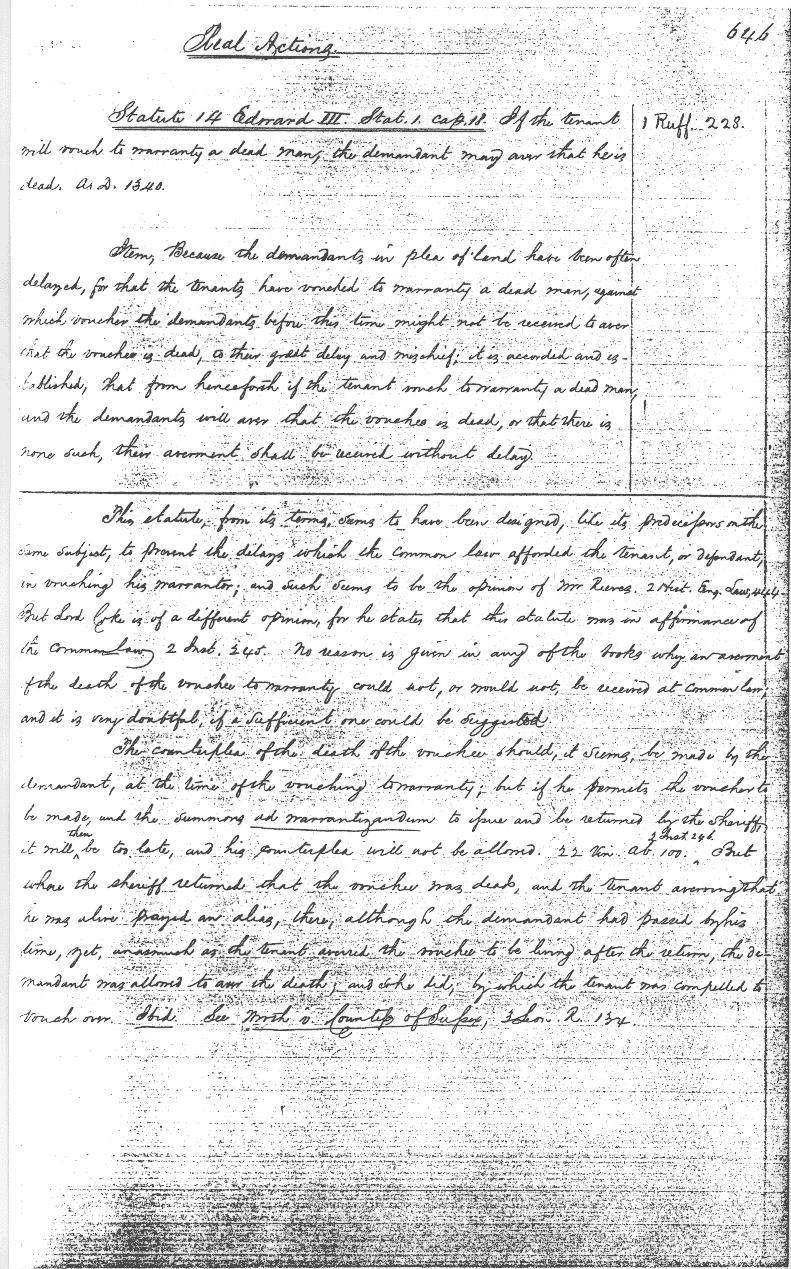 646
Real Actions.
Statute 14 Edward III Stat. 1. cap. 18. If the tenant
1 Ruff. 228.
will vouch to warranty a dead man, the demandant may aver that he is
dead. A.D. 1340.
Item, Because the demandants in plea of land have been often
delayed, for that the tenants have vouched to warranty a dead man, against
which voucher the demandants before this time might not be received to aver
that the vouchee is dead, to their great delay and mischief; it is accorded and es-
tablished, that from henceforth if the tenant vouch to warranty a dead man,
and the demandants will aver that the vouchee is dead, or that there is
none such, their averment shall be received without delay.
This statute, from its terms, seems to have been designed, like its predecessors on the
same subject, to prevent the delays which the common law afforded the tenant, or defendant,
in vouching his warrantor; and such seems to be the opinion of Mr Reeves. 2 Hist. Eng. Law, 444.
But Lord Coke is of a different opinion, for he states that this statute was in affirmance of
the common law, 2 Inst. 245. No reason is given in any of the books why an averment
of the death of the vouchee to warranty could not, or would not, be received at common law,
and it is very doubtful, if a sufficient one could be suggested.
The counterplea of the death of the vouchee should, it seems, be made by the
demandant, at the time of the vouching to warranty; but if he permits the voucher to
be made, and the summons ad warrantizandum to issue and be returned by the sheriff,
it will then be too late, and his counterplea will not be allowed. 22 Vin. Ab. 100. 2 Inst. 246. But
where the sheriff returned that the vouchee was dead, and the tenant averring that
he was alive prayed an alias, there, although the demandant had passed by his
time, yet, inasmuch as the tenant averred the vouchee to be living after the return, the de-
mandant was allowed to aver the death; and so he did; by which the tenant was compelled to
vouch over. Ibid. See Wroth v. Countess of Sussex, 3 Leon. R. 134.